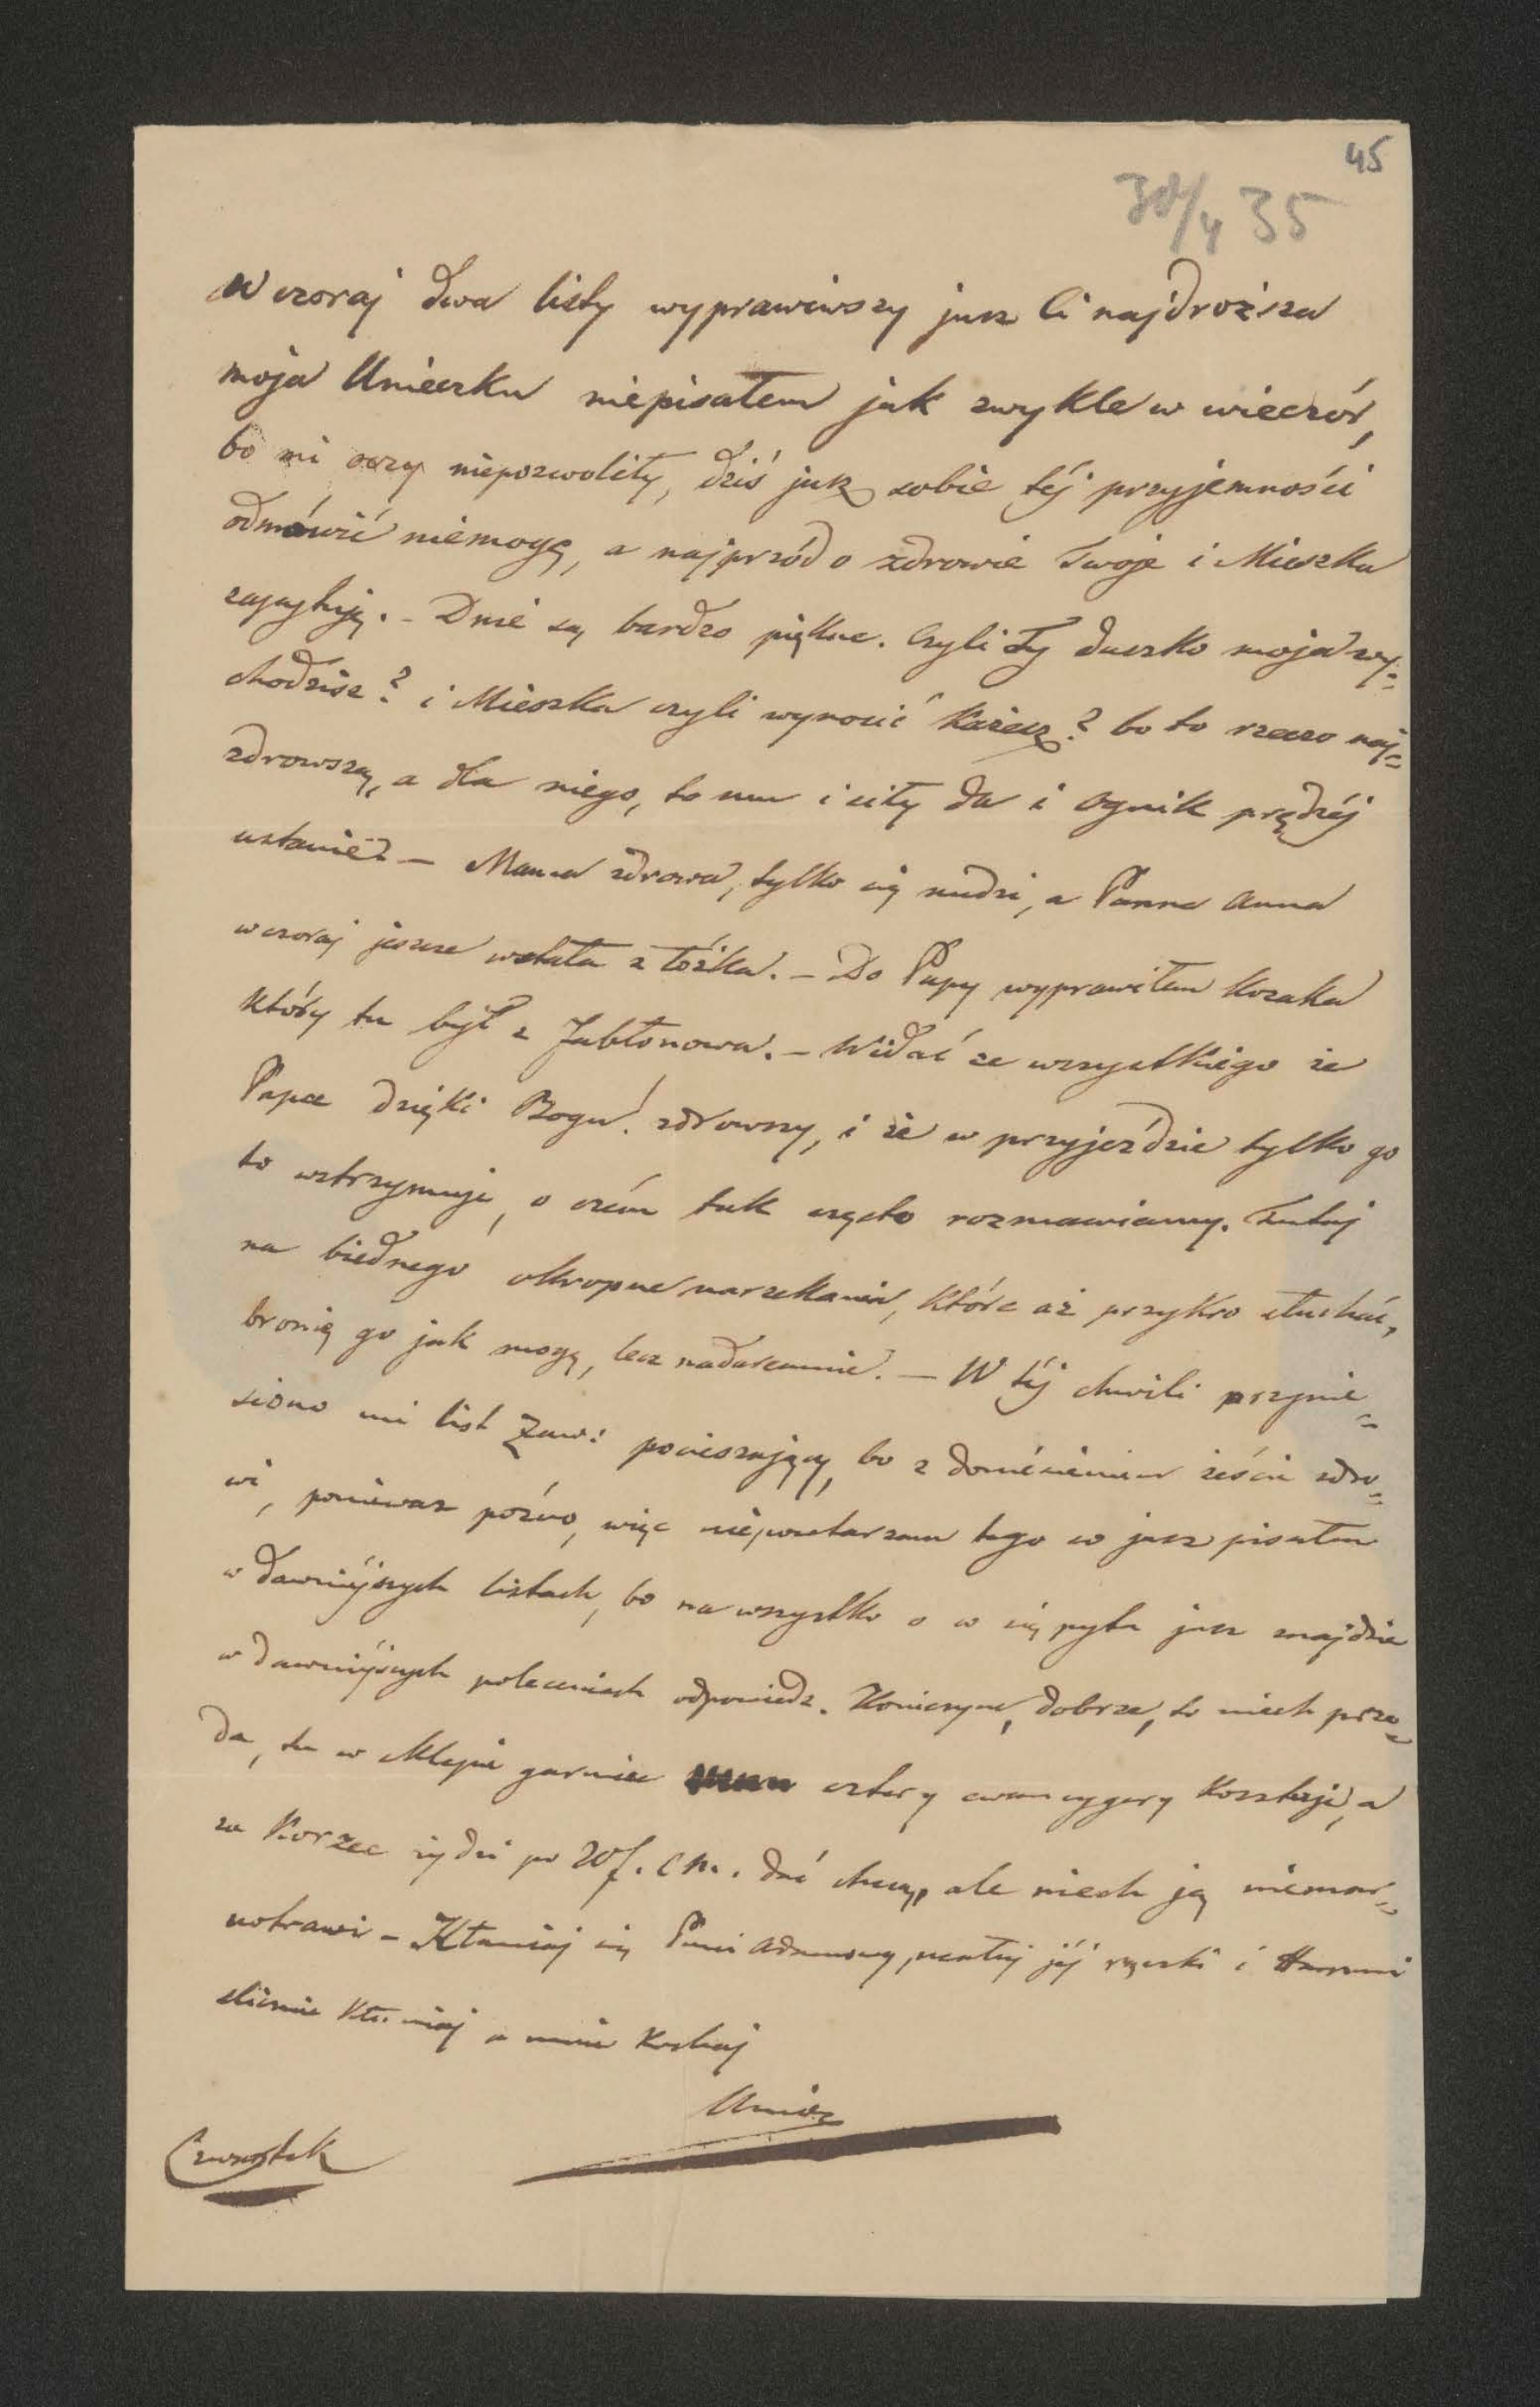 45
30/4 35
Wczoraj dwa listy wyprawiwszy jusz Ci najdroższa
moja Unieczku niepisałem jak zwykle w wieczór,
bo mi oczy niepozwoliły, dziś jusz sobie téj przyjemności
odmówić niemogę, a najprzód o zdrowie Twoje i Mieszka
zapytuję. – Dnie są bardzo piękne. Czyli Ty duszko moja wy=
chodzisz? i Mieszka czyli wynosić każesz? bo to rzecz naj=
zdrowsza, a dla niego, to mu i siły da i ognik prędzéj
ustanie. – Mama zdrowa, tylko się nudzi, a Panna Anna
wczoraj jeszcze wstała z łóżka. – Do Papy wyprawiłem kozaka
który tu był z Jabłonowa. – Widać ze wszystkiego że
Papa dzięki Bogu! zdrowszy, i że w przyjeździe tylko go
to wstrzymuje, o czém tak często rozmawiamy. Tutaj
na biednego okropne narzekania, które aż przykro słuchać,
bronię go jak mogę, lecz nadaremnie. – W téj chwili przynie=
siono mi list Zaw: pocieszający, bo z doniesieniem żeście zdro=
wi, poniewasz pózno, więc niepowtarzam tego co jusz pisałem
w dawniéjszych listach, bo na wszystko o co się pyta jusz znajdzie
w dawniéjszych poleceniach odpowiedz. Koniczynę, dobrze, to niech prze=
da, tu w sklepie garniec cztery cwancygery kosztuje, a
za korzec żydzi po 20 f. C.M. dać chcą, ale niech ją niemar=
notrawi – Kłaniaj się Pani Adamowy, ucałuj jéj rączki i
ślicznie kłaniaj a mnie kochaj
Unio
Czwartek